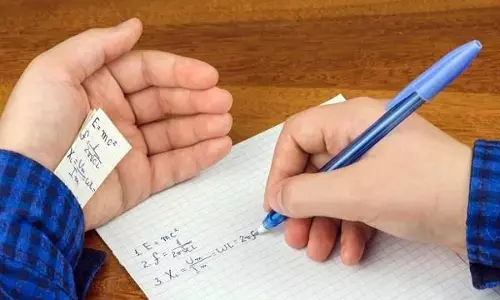 E=mc²
f=1/2π√CL
X_L=U_m/I_m=WL
1. E=mc²
2. f=1/2π√CL
3. X_L=U_m/I_m=WL=2πf